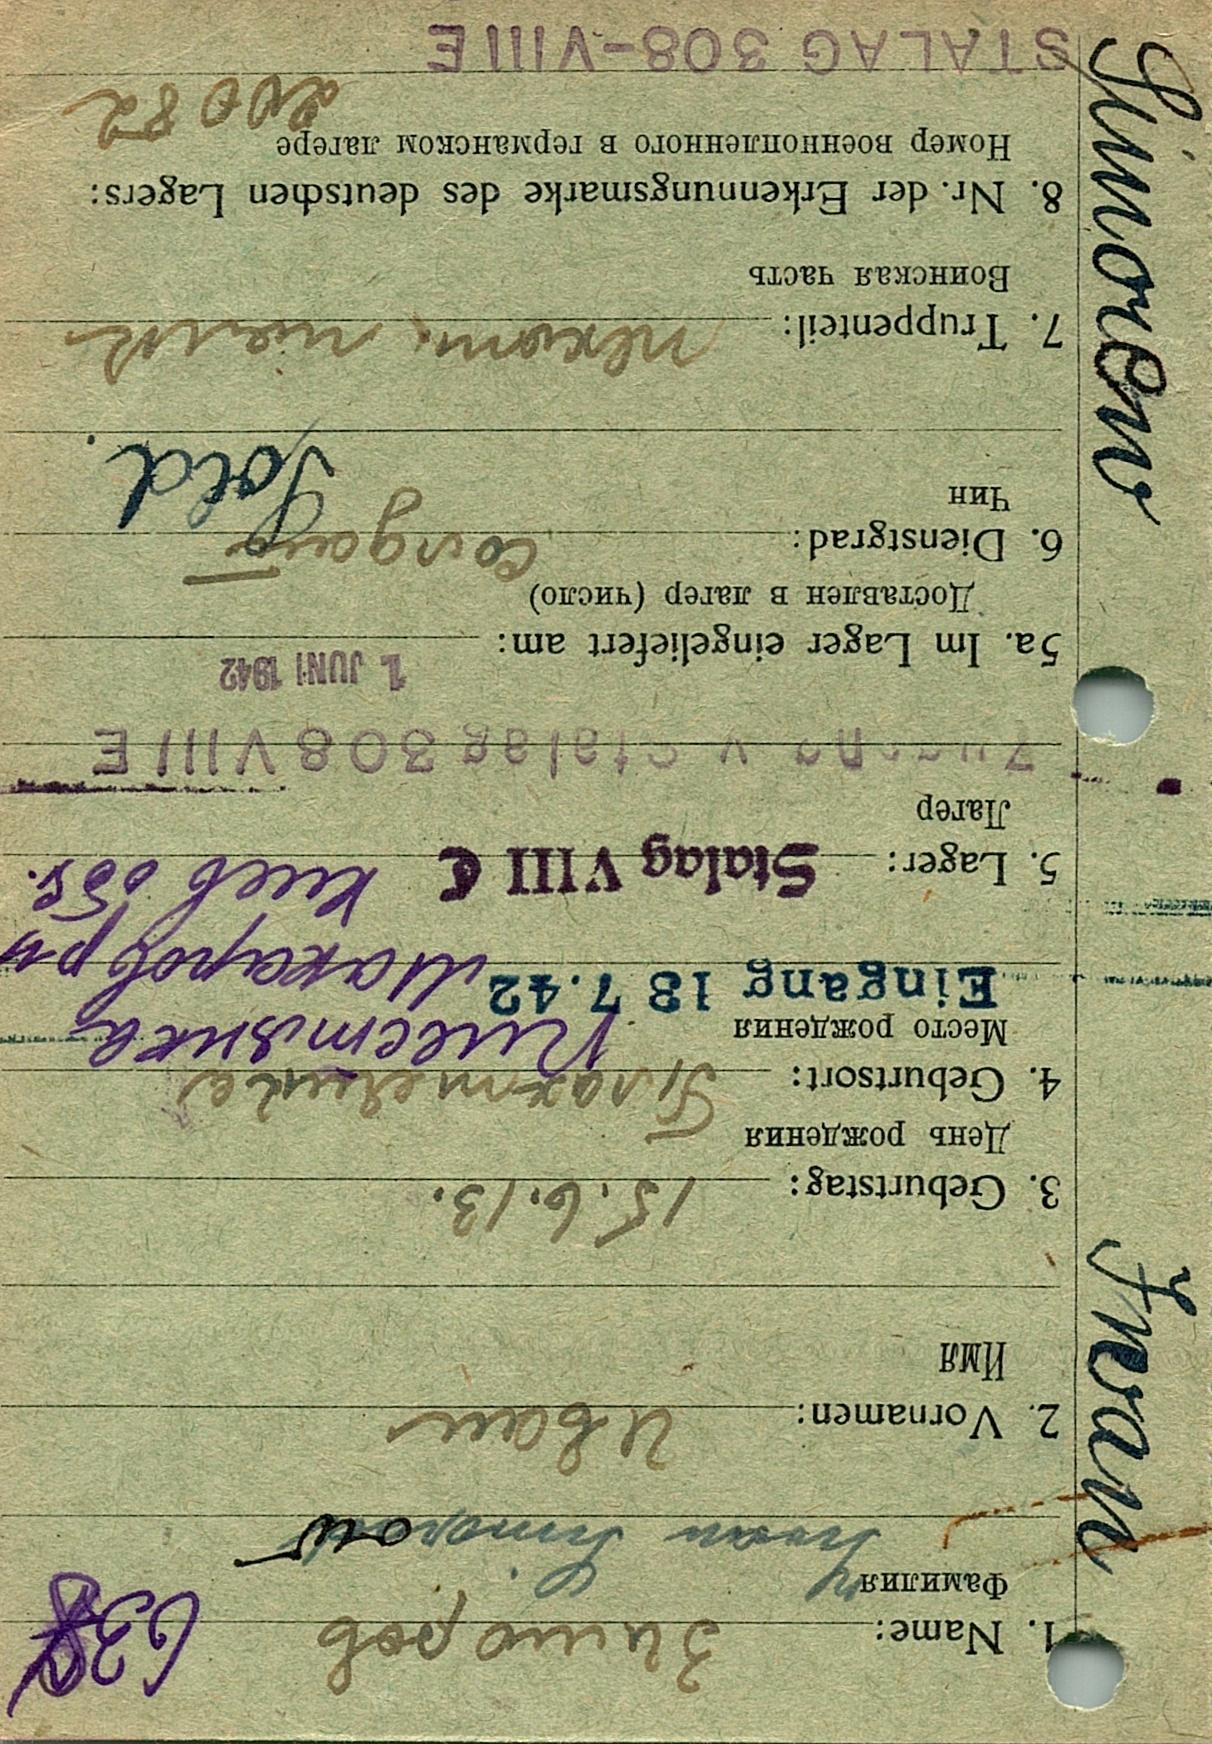 638
1. Name: Зиморов
Фамилия
Iwan Simorow
2. Vornamen: Иван
Имя
3. Geburtstag: 15.6.13.
День рождения
4. Geburtsort:
Место рождения
Eingang 18 7.42
Макаров рн
5. Lager: Stalag VIII C Киев обл.
Лагер
v Stalag 308 VIII E
1. JUNI 1942
5a. Im Lager eingeliefert am:
Доставлен в лагер (число)
6. Dienstgrad: солдат
Чин
Sold.
7. Truppenteil:
Воинская часть
8. Nr. der Erkennungsmarke des deutschen Lagers:
Номер военнопленного в германском лагере
20082
STALAG 308-VIII E
Simorew Iwan